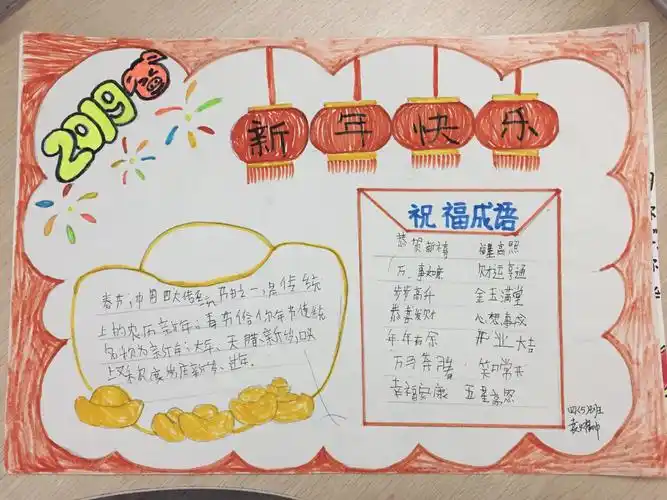 2019
新年快乐
祝福成语
恭贺新禧 福星高照
万事如意 财运亨通
步步高升 金玉满堂
恭喜发财 心想事成
年年有余 开业大吉
万马奔腾 笑口常开
幸福安康 五星高照
春节,中国四大传统节日之一,是传统
上的农历新年。春节俗你年节传统
名称为新年、大年、天腊、新岁,口头
上又农度岁庆新岁、过年。
四(5)班